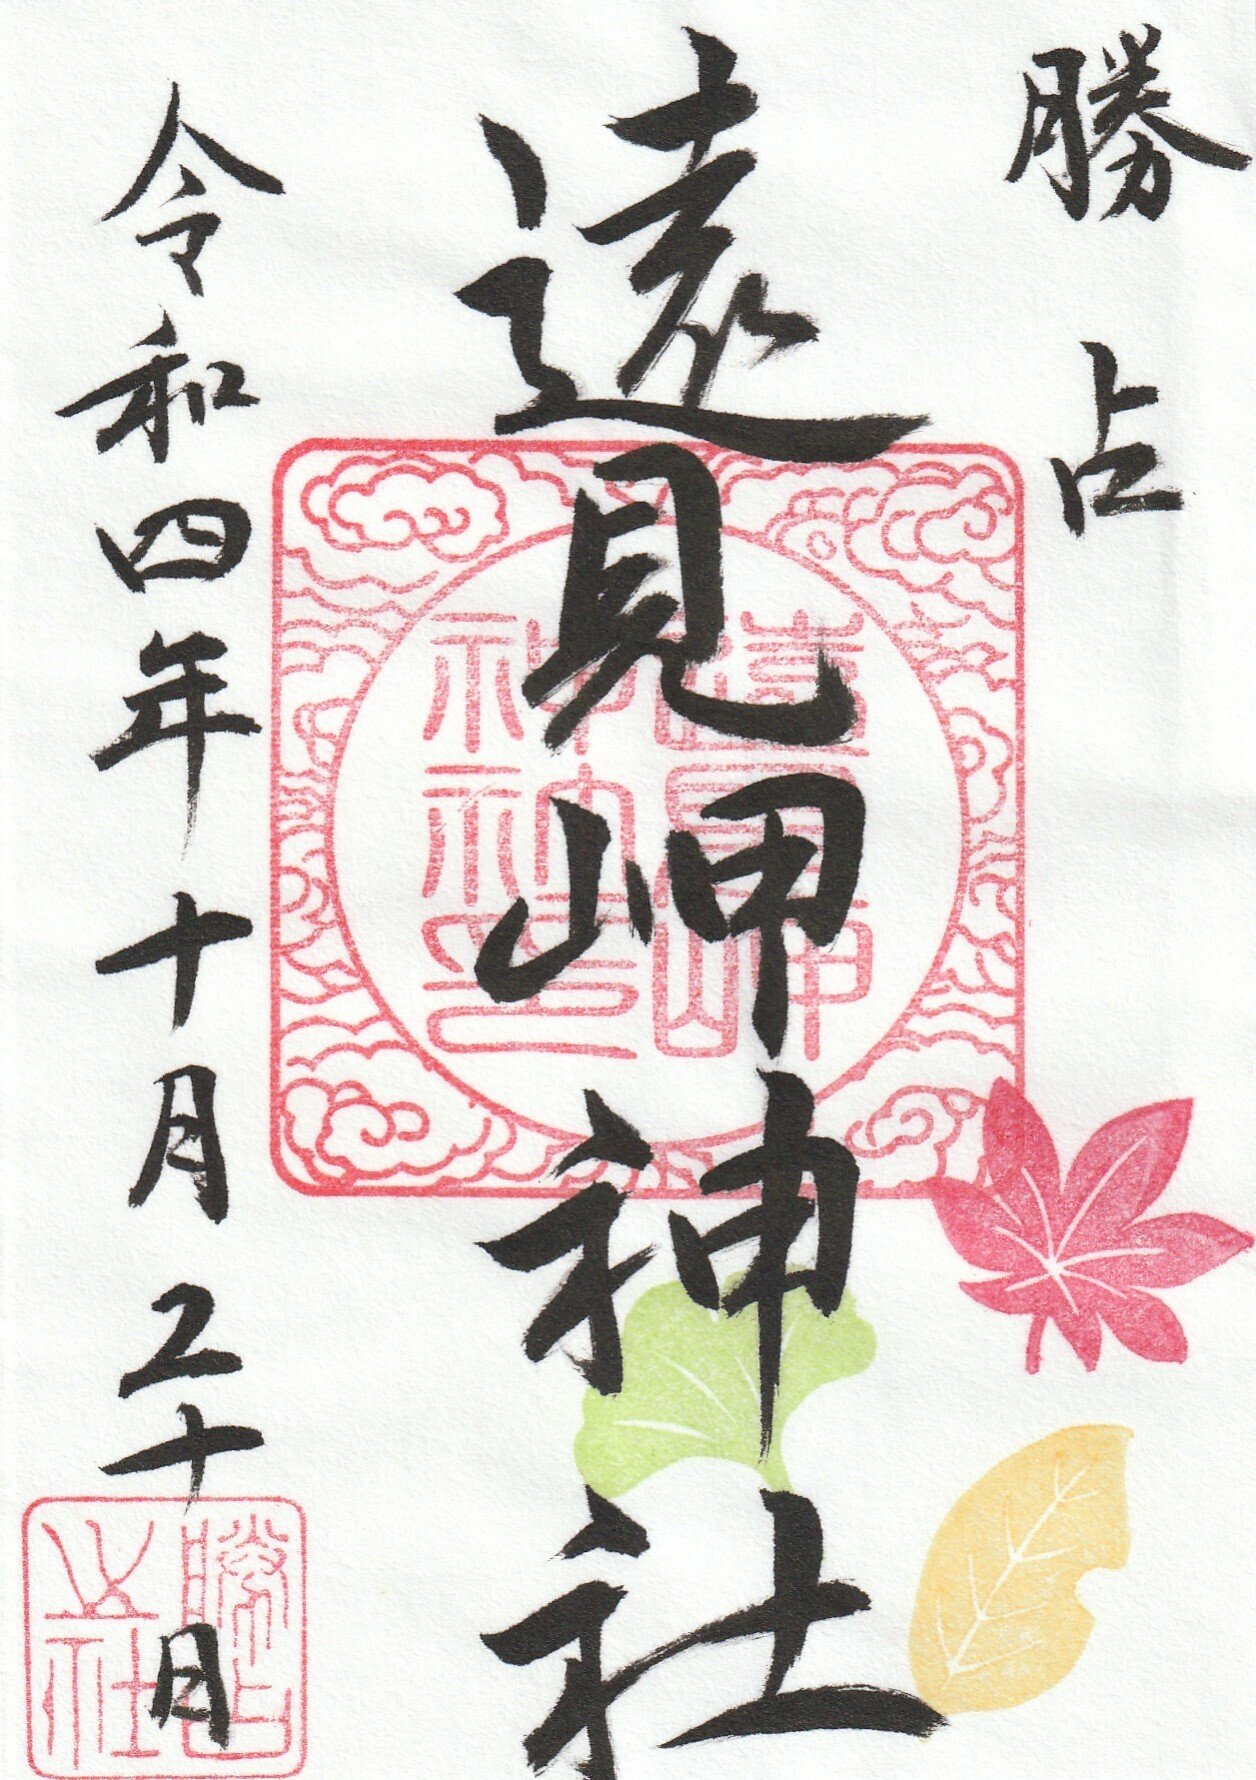 勝占
遠見岬神社
遠見岬
神社印
令和四年十月二十日
勝占
之社